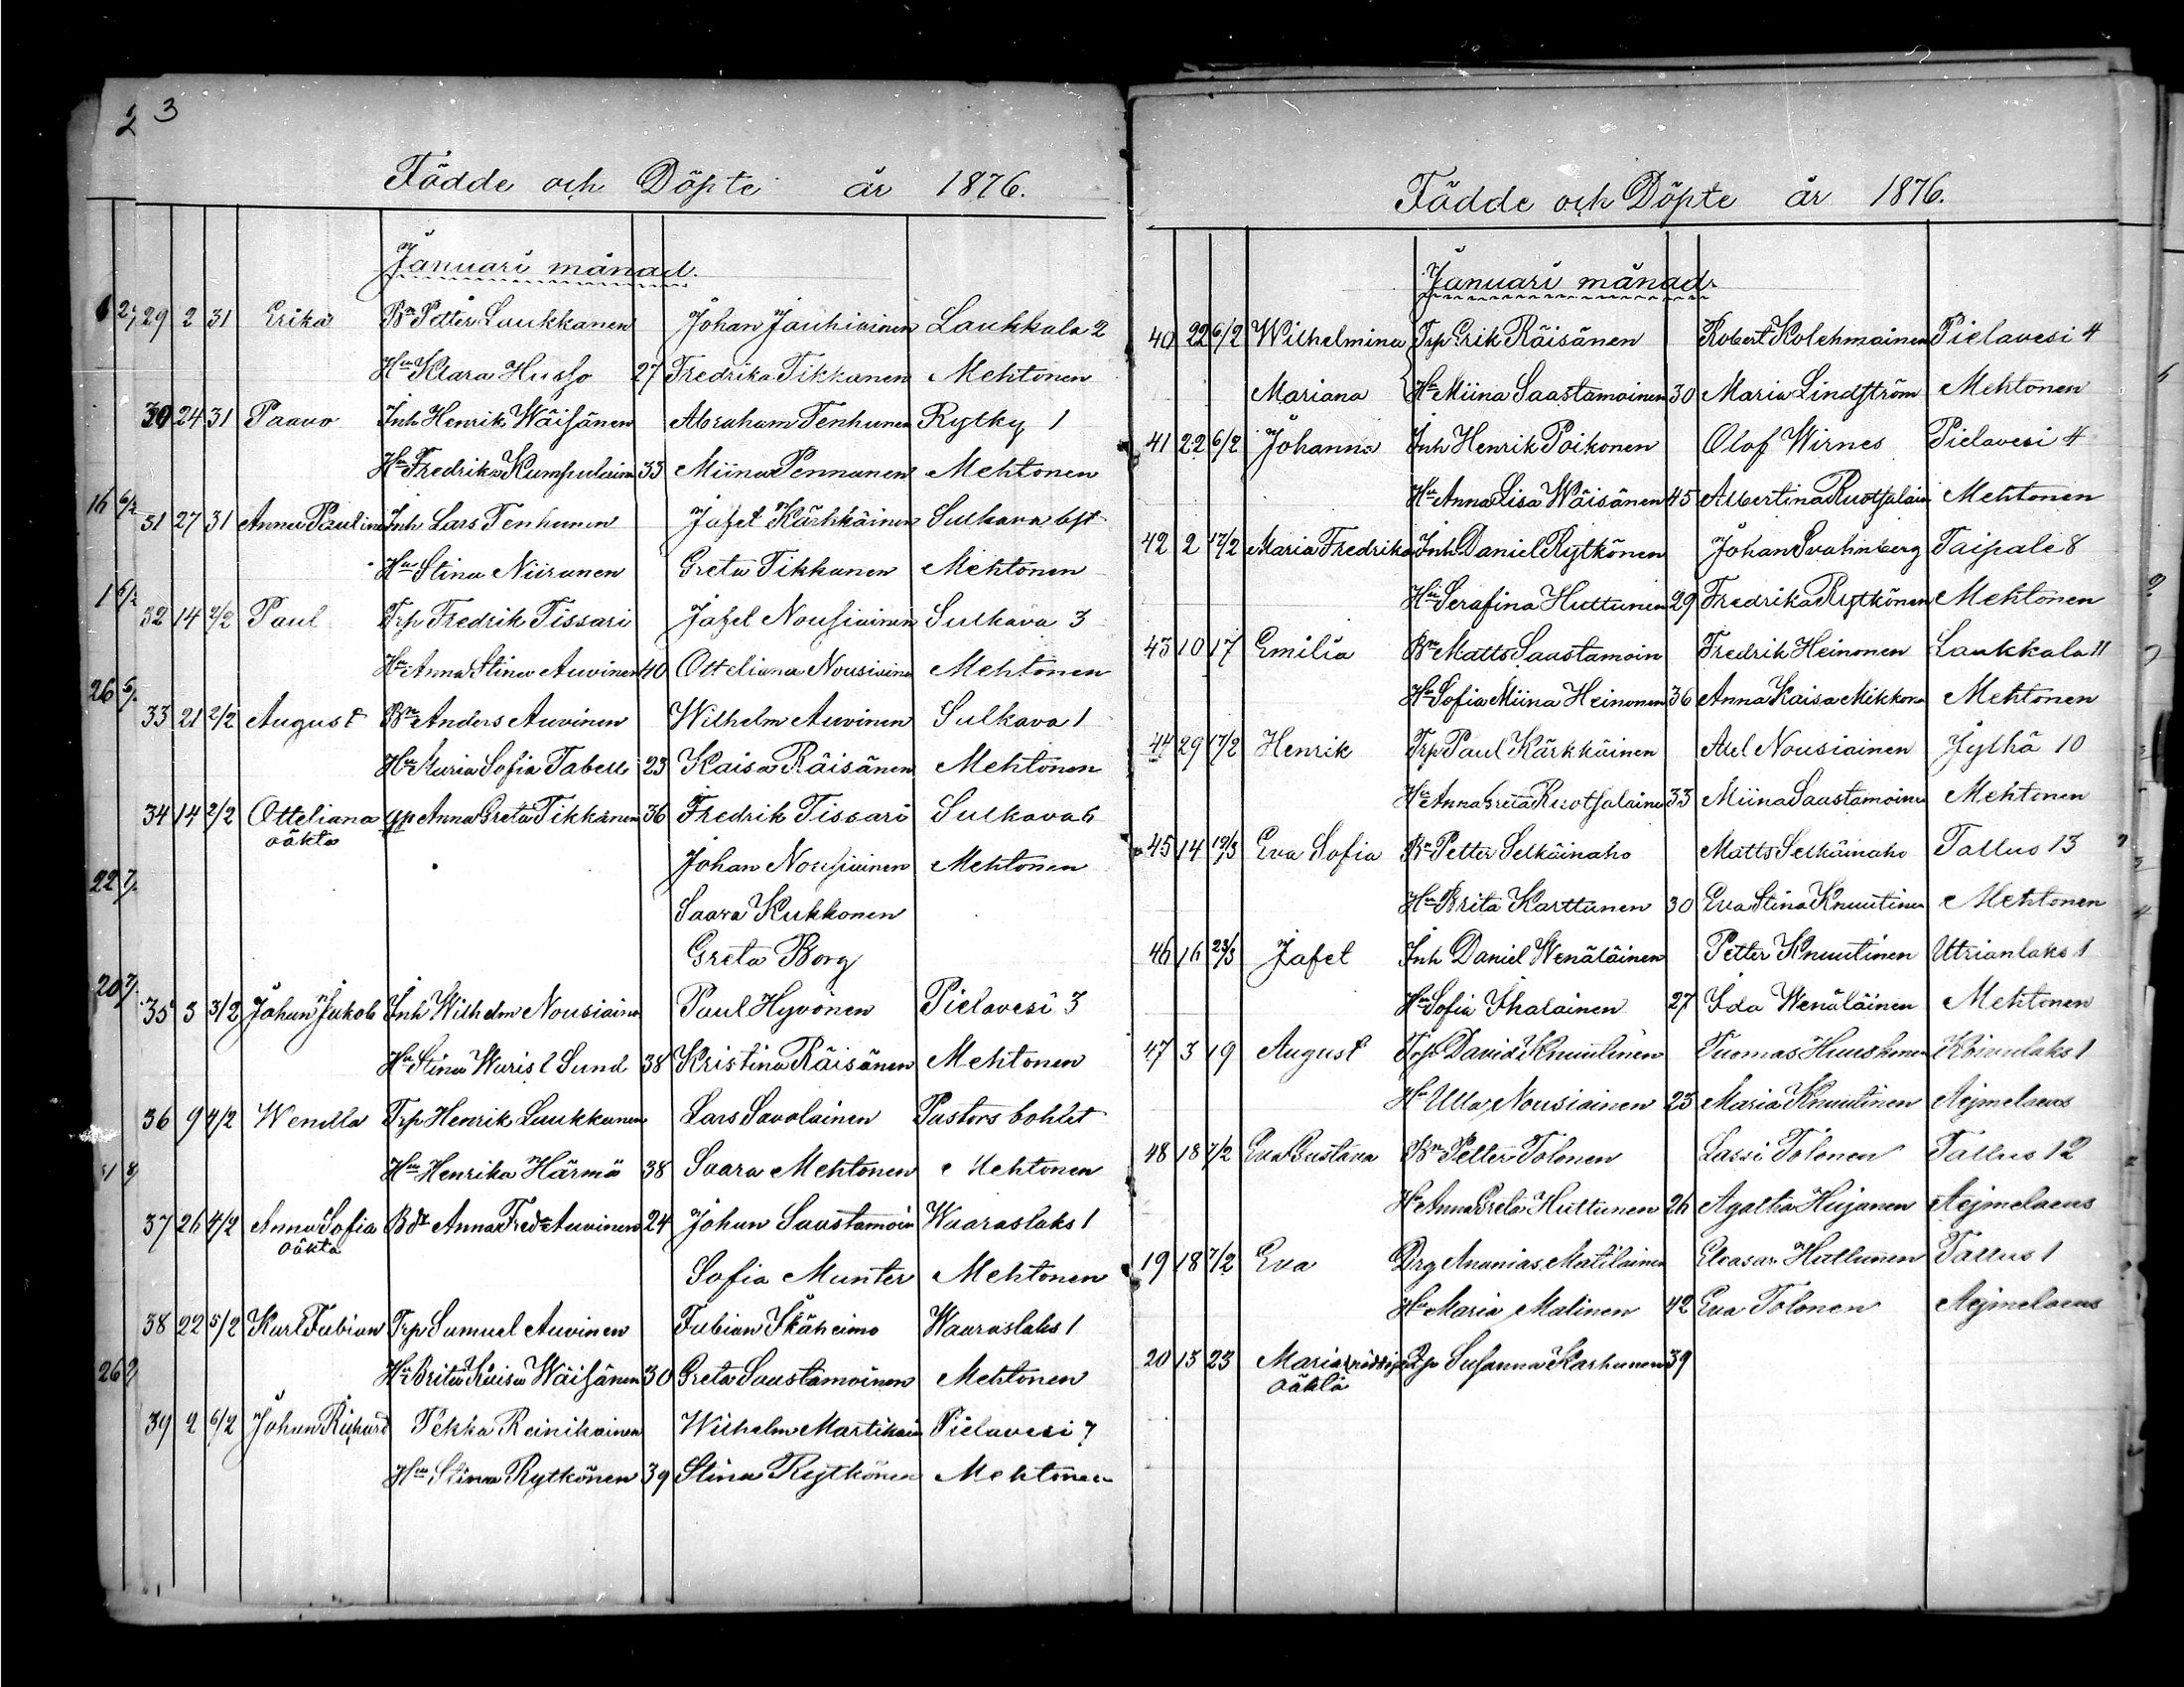 2 3
Födde och Döpte år 1876.
Januari månad.
29 2 31 Erika Bn Petter Laukkanen Johan Jauhiainen Laukkala 2
Hu Klara Husso 27 Fredrika Tikkanen Mehtonen
30 24 31 Paavo Inh Henrik Wäisänen Abraham Tenhunen Rytky 1
Hu Fredrika Kumpulain 33 Miina Pennanen Mehtonen
31 27 31 Anna Paulina Inh Lars Tenhunen Jafet Kärkkäinen Sulkava bst
Hu Stina Niiranen Greta Tikkanen Mehtonen
32 14 2/2 Paul Trp Fredrik Tissari Jafet Nousiainen Sulkava 3
Hu Anna Stina Auvinen 40 Otteliana Nousiaine Mehtonen
33 21 2/2 August Bn Anders Auvinen Wilhelm Auvinen Sulkava 1
Hu Maria Sofia Tabell 23 Kaisa Räisänen Mehtonen
34 14 2/2 Otteliana qp Anna Greta Tikkanen 36 Fredrik Tissari Sulkava 6
oäkta
Johan Nousiainen Mehtonen
Saara Kukkonen
Greta Borg
35 3 3/2 Johan Jakob Inh Wilhelm Nousiaine Paul Hyvönen Pielavesi 3
Hu Stina Waris l Sund 38 Kristina Räisänen Mehtonen
36 9 4/2 Wendla Trp Henrik Laukkanen Lars Savolainen Pastors bohlet
Hu Henrika Härmä 38 Saara Mehtonen Mehtonen
37 26 4/2 Anna Sofia Bdr Anna Freda Auvinen 24 Johan Saastamoin Waaraslaks 1
oäkta
Sofia Munter Mehtonen
38 22 5/2 Karl Fabian Trp Samuel Auvinen Fabian Ikäheimo Waaraslaks 1
Hu Brita Kaisa Wäisänen 30 Greta Saastamoinen Mehtonen
39 2 6/2 Johan Richard Pekka Reinikainen Wilhelm Martikain Pielavesi 7
Hu Stina Rytkönen 39 Stina Rytkönen Mehtonen
Födde och Döpte år 1876.
Januari månad.
40 22 6/2 Wilhelmina Trp Erik Räisänen Robert Kolehmainen Pielavesi 4
Mariana Hu Miina Saastamoinen 30 Maria Lindström Mehtonen
41 22 6/2 Johanna Inh Henrik Poikonen Olof Wirnes Pielavesi 4
Hu Anna Lisa Wäisänen 45 Albertina Ruotsalain Mehtonen
42 2 17/2 Maria Fredrika Inh Daniel Rytkönen Johan Svahnberg Taipale 8
Hu Serafina Huttunen 29 Fredrika Rytkönen Mehtonen
43 10 17 Emilia Bn Matts Saastamoin Fredrik Heinonen Laukkala 11
Hu Sofia Miina Heinonen 36 Anna Kaisa Mikkone Mehtonen
44 29 17/2 Henrik Trp Paul Kärkkäinen Axel Nousiainen Jylhä 10
Hu Anna Greta Ruotsalaine 33 Miina Saastamoine Mehtonen
45 14 19/3 Eva Sofia Bn Petter Selkäinaho Matts Selkäinaho Tallus 13
Hu Brita Karttunen 30 Eva Stina Knuutinen Mehtonen
46 16 23/3 Jafet Inh Daniel Wenäläinen Petter Knuutinen Utrianlaks 1
Hu Sofia Ihalainen 27 Ida Wenäläinen Mehtonen
47 3 19 August Trp David Knuutinen Tuomas Huuskonen Koivulaks 1
Hu Ulla Nousiainen 23 Maria Knuutinen Aejmelaeus
48 18 7/2 Eva Gustava Bn Petter Tolonen Lassi Tolonen Tallus 12
Hu Anna Greta Huttunen 26 Agatha Hujanen Aejmelaeus
19 18 7/2 Eva Drg Ananias Matilainen Eleasar Huttunen Tallus 1
Hu Maria Malinen 42 Eva Tolonen Aejmelaeus
20 13 23 Maria Qp Susanna Karhunen 39
oäkta